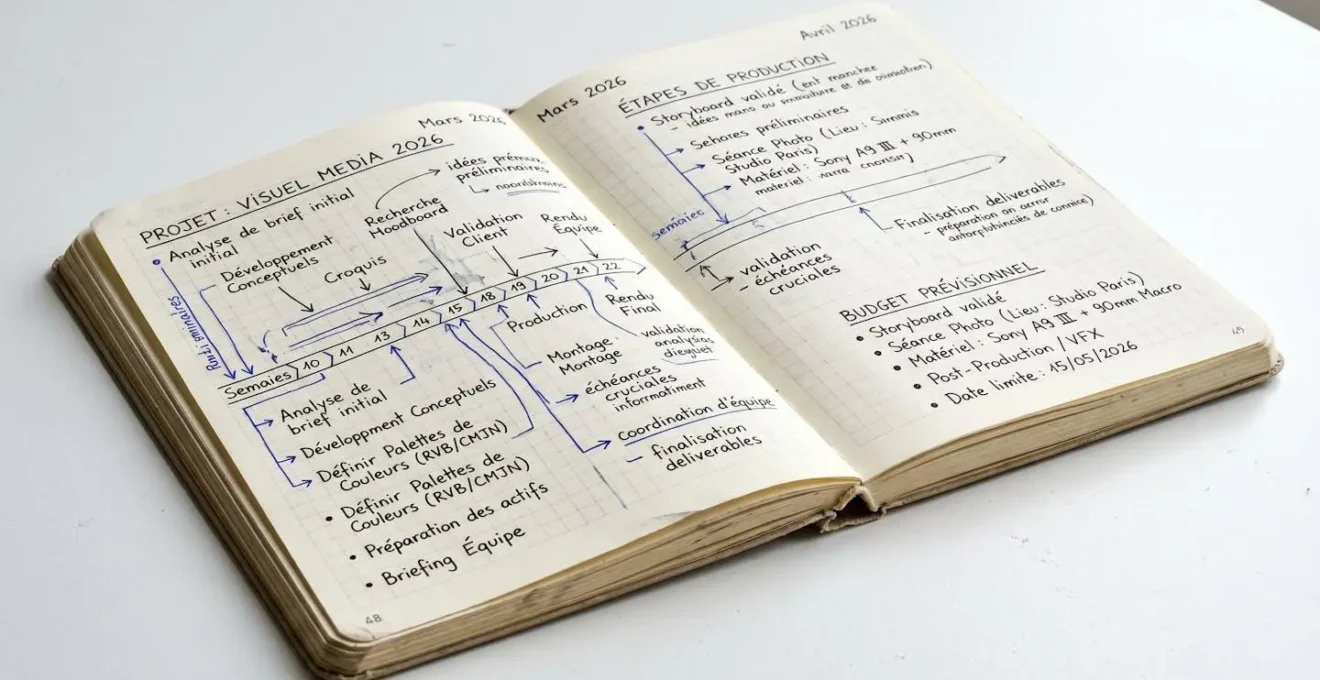 Mars 2026
PROJET : VISUEL MEDIA 2026
Analyse de brief initial
initial
Développement
Conceptuels
Croquis
Recherche
Moodboard
idées
préliminaires
Validation
Client
Rendu
Équipe
Semaies 10 11 13 14 15 18 19 20 21 22
Production
Rendu
Final
Montage :
Montage
validation
échéances
cruciales
coordination d'équipe
– finalisation
deliverables
Analyse de
brief initial
Développment Conceptuels
Définir Palettes de
Couleurs (RVB/CMJN)
• Définir Palettes de
Couleurs (RVB/CMJN)
• Préparation des actifs
• Briefing Équipe
48
Mars 2026
Avril 2026
ÉTAPES DE PRODUCTION
Storyboard validé
– idées
préliminaires
Séance Photo (Lieu : Simmis
Studio Paris)
Matériel : Sony A9 III + 90mm
materiel :
semaiec
Finalisation deliverables
– préparation
validation
– échéances
cruciales
BUDGET PRÉVISIONNEL
• Storyboard validé
• Séance Photo (Lieu : Studio Paris)
• Matériel : Sony A9 III + 90mm Macro
• Post-Production / VFX
• Date limite : 15/05/2026